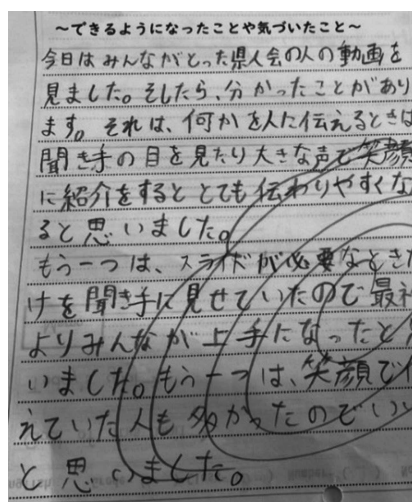 ～できるようになったことや気づいたこと～
今日はみんながとった県人会の人の動画を
見ました。そしたら、分かったことがあり
ます。それは、何かを人に伝えるときは
聞き手の目を見たり大きな声で笑顔
に紹介をするととても伝わりやすくな
ると思いました。
もう一つは、スライドが必要なときだ
けを聞き手に見せていたので最初
よりみんなが上手になったと
いました。もう一つは、笑顔で伝
えていた人も多かったのでいい
と思いました。